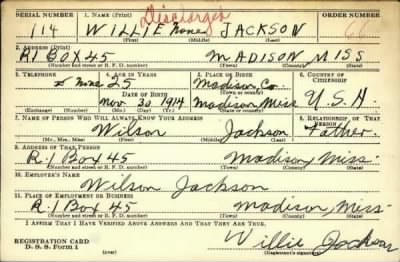 Discharged
SERIAL NUMBER 1. NAME (Print) ORDER NUMBER
114 WILLIE None JACKSON
(First) (Middle) (Last)
2. ADDRESS (Print)
R.1 BOX 45 MADISON MISS
(Number and street or R. F. D. number) (Town) (County) (State)
3. TELEPHONE 4. AGE IN YEARS 5. PLACE OF BIRTH 6. COUNTRY OF CITIZENSHIP
None 25 Madison, Co.
DATE OF BIRTH (Town or county)
Nov. 30 1914 Madison, Miss U.S.A.
(Exchange) (Number) (Mo.) (Day) (Yr.) (State or country)
7. NAME OF PERSON WHO WILL ALWAYS KNOW YOUR ADDRESS 8. RELATIONSHIP OF THAT PERSON
Wilson Jackson Father
(Mr., Mrs., Miss) (First) (Middle) (Last)
9. ADDRESS OF THAT PERSON
R.1 Box 45 Madison Miss
(Number and street or R. F. D. number) (Town) (County) (State)
10. EMPLOYER'S NAME
Wilson Jackson
11. PLACE OF EMPLOYMENT OR BUSINESS
R.1 Box 45 Madison, Miss
(Number and street or R. F. D. number) (Town) (County) (State)
I AFFIRM THAT I HAVE VERIFIED ABOVE ANSWERS AND THAT THEY ARE TRUE.
REGISTRATION CARD
D. S. S. Form 1 (over) Willie Jackson
(Registrant's signature)